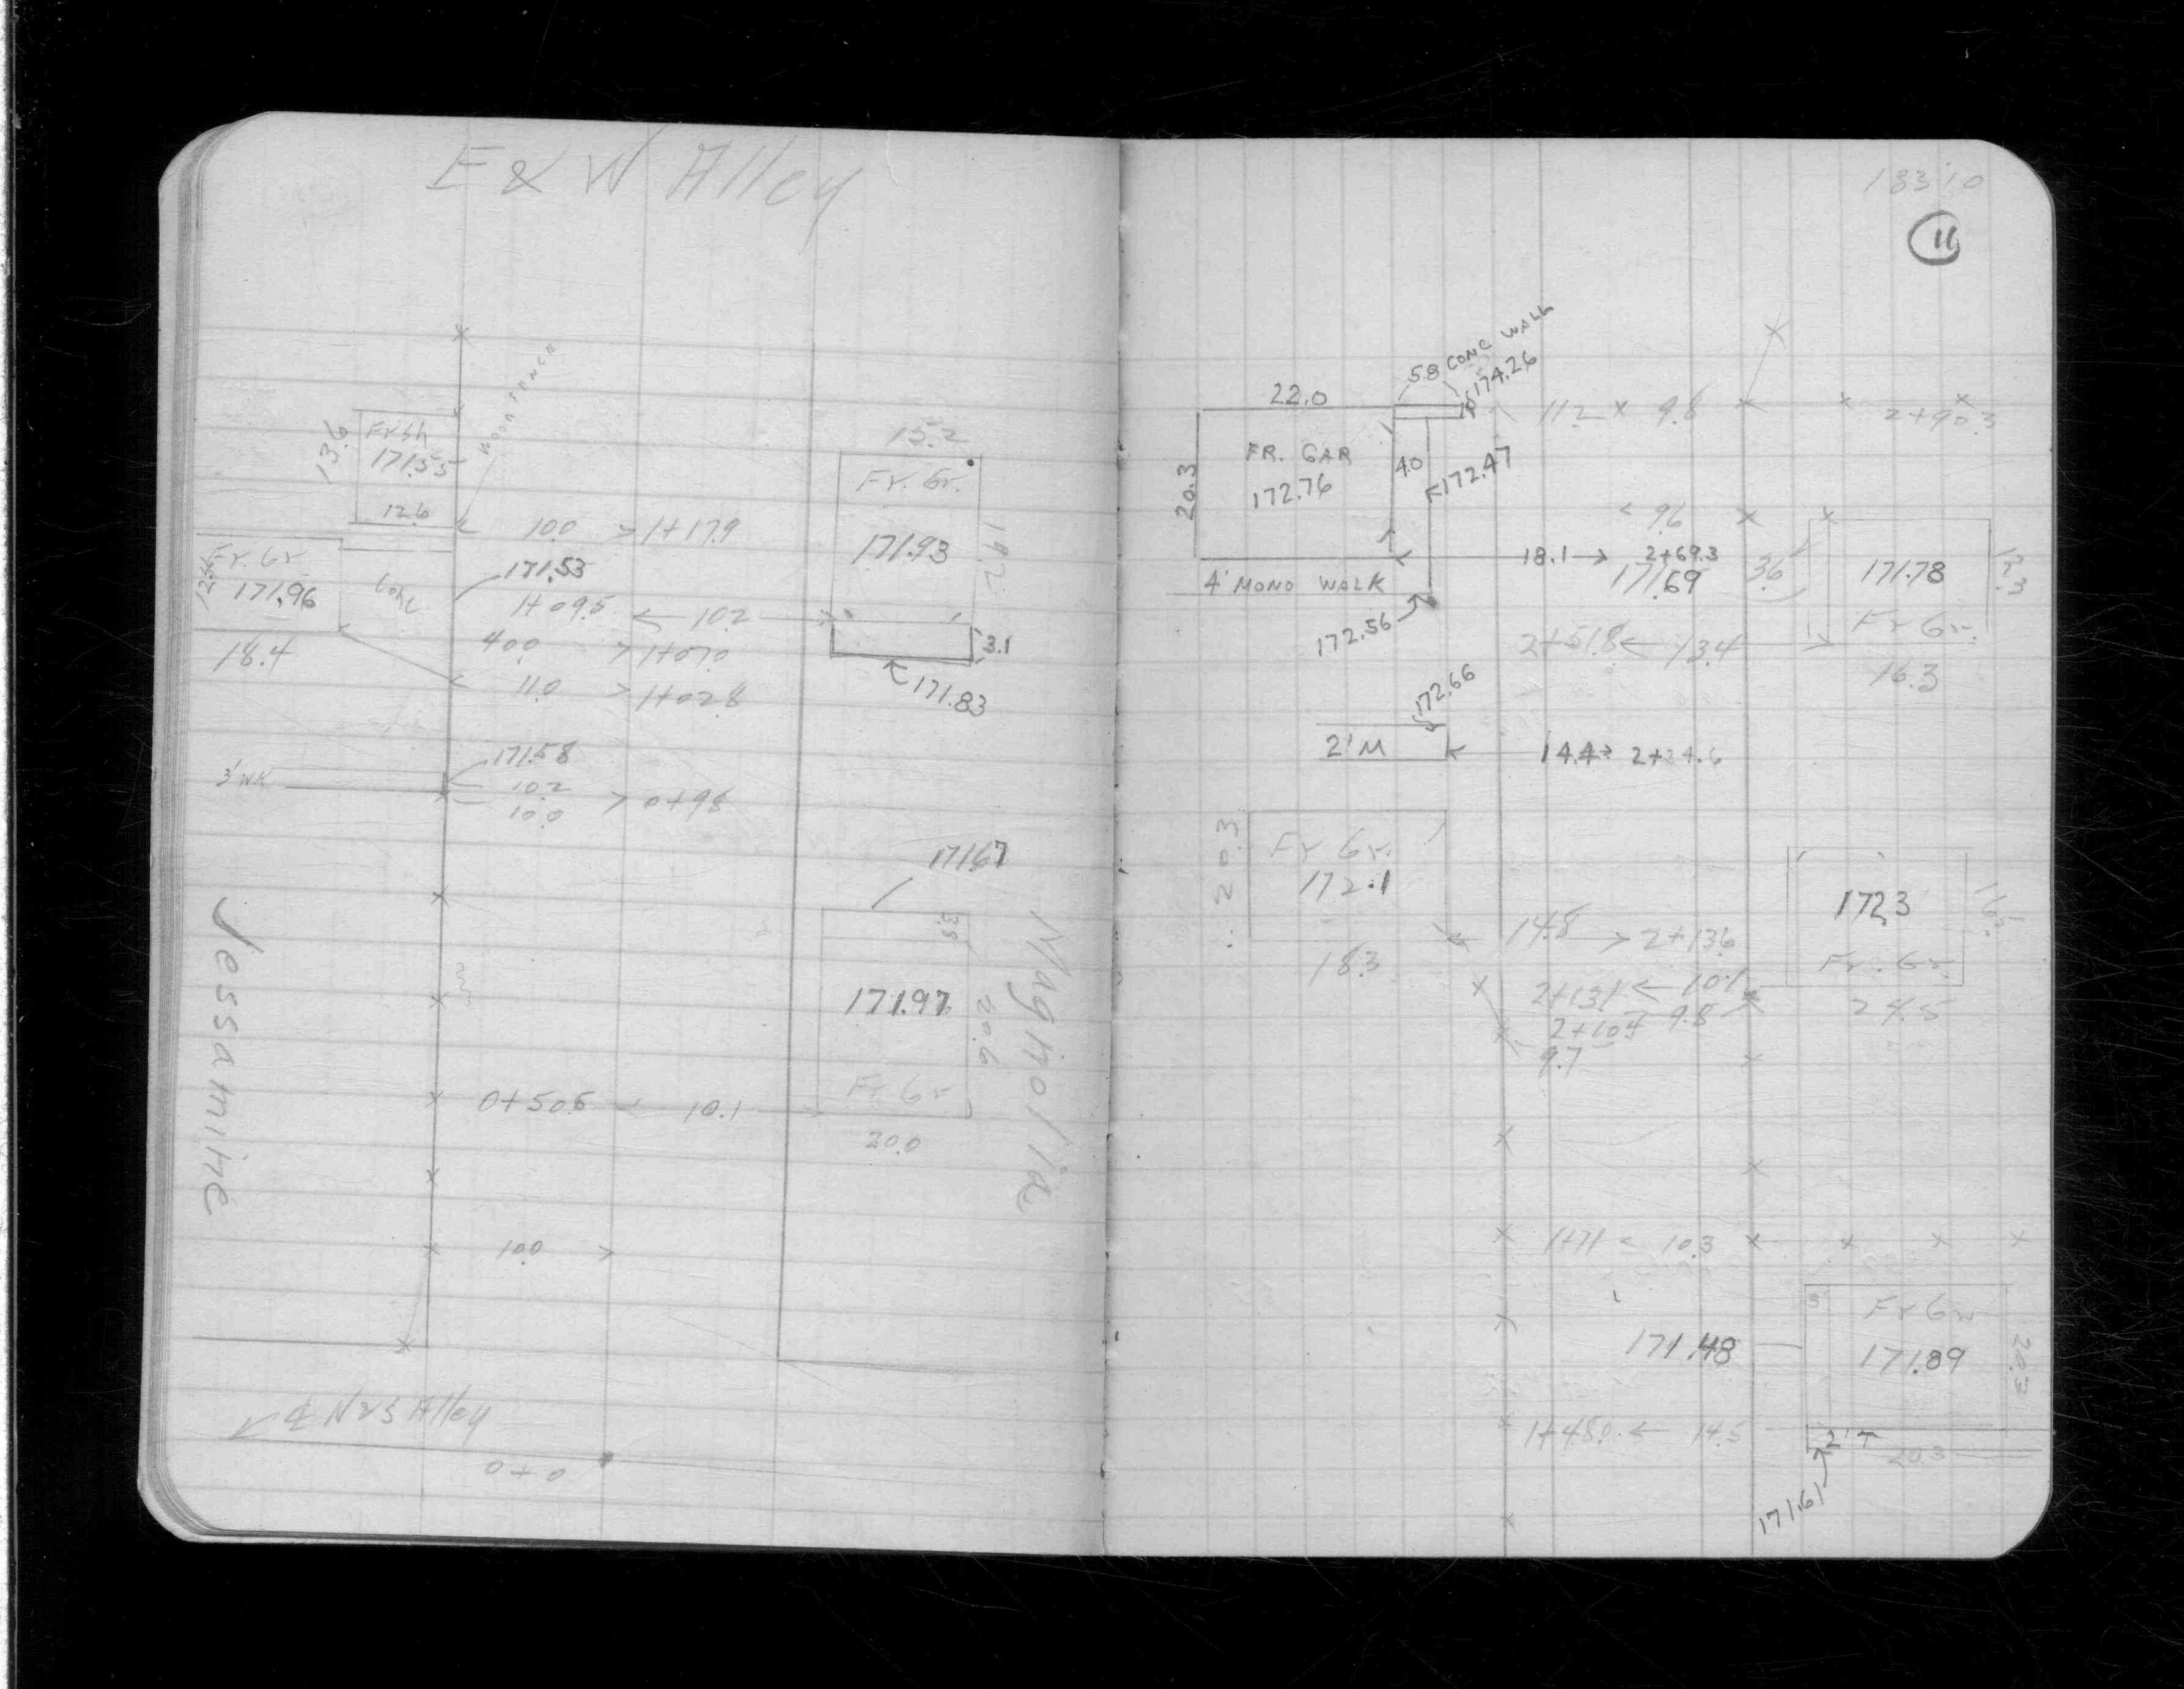 E & W Alley
WOOD FENCE
13.6
Fr Sh
171.55
12.6
10.0 > 1+17.9
Fr. Gr.
171.96
18.4
Conc
171.53
1+09.5 <- 10.2
40.0 > 1+07.0
11.0 > 1+02.8
15.2
Fr. Gr.
171.93
19.2
3.1
171.83
3' WK
171.58
10.2
10.0 > 0+98
171.67
3.8
171.97
20.6
Fr Gr
20.0
0+50.5 <- 10.1
10.0 >
Jessamine
Magnolia
℄ N & S Alley
0+0
11
5.8 CONC WALK
174.26
22.0
FR. GAR
172.76
20.3
4.0
172.47
4' MONO WALK
172.56
11.2 x 9.8
2+90.3
< 9.6
18.1 -> 2+69.3
171.69
3.6
171.78
Fr Gr.
16.3
2+51.8 <- 13.4
172.66
2' M
14.4 -> 2+24.6
20.3
Fr Gr.
172.1
18.3
14.8 -> 2+13.6
2+13.1 <- 10.1
9.8
9.7
172.3
Fr. Gr.
24.5
1+71 < 10.3
171.48
Fr Gr
171.89
20.3
1+45.0 <- 14.5
2' T
20.3
171.61